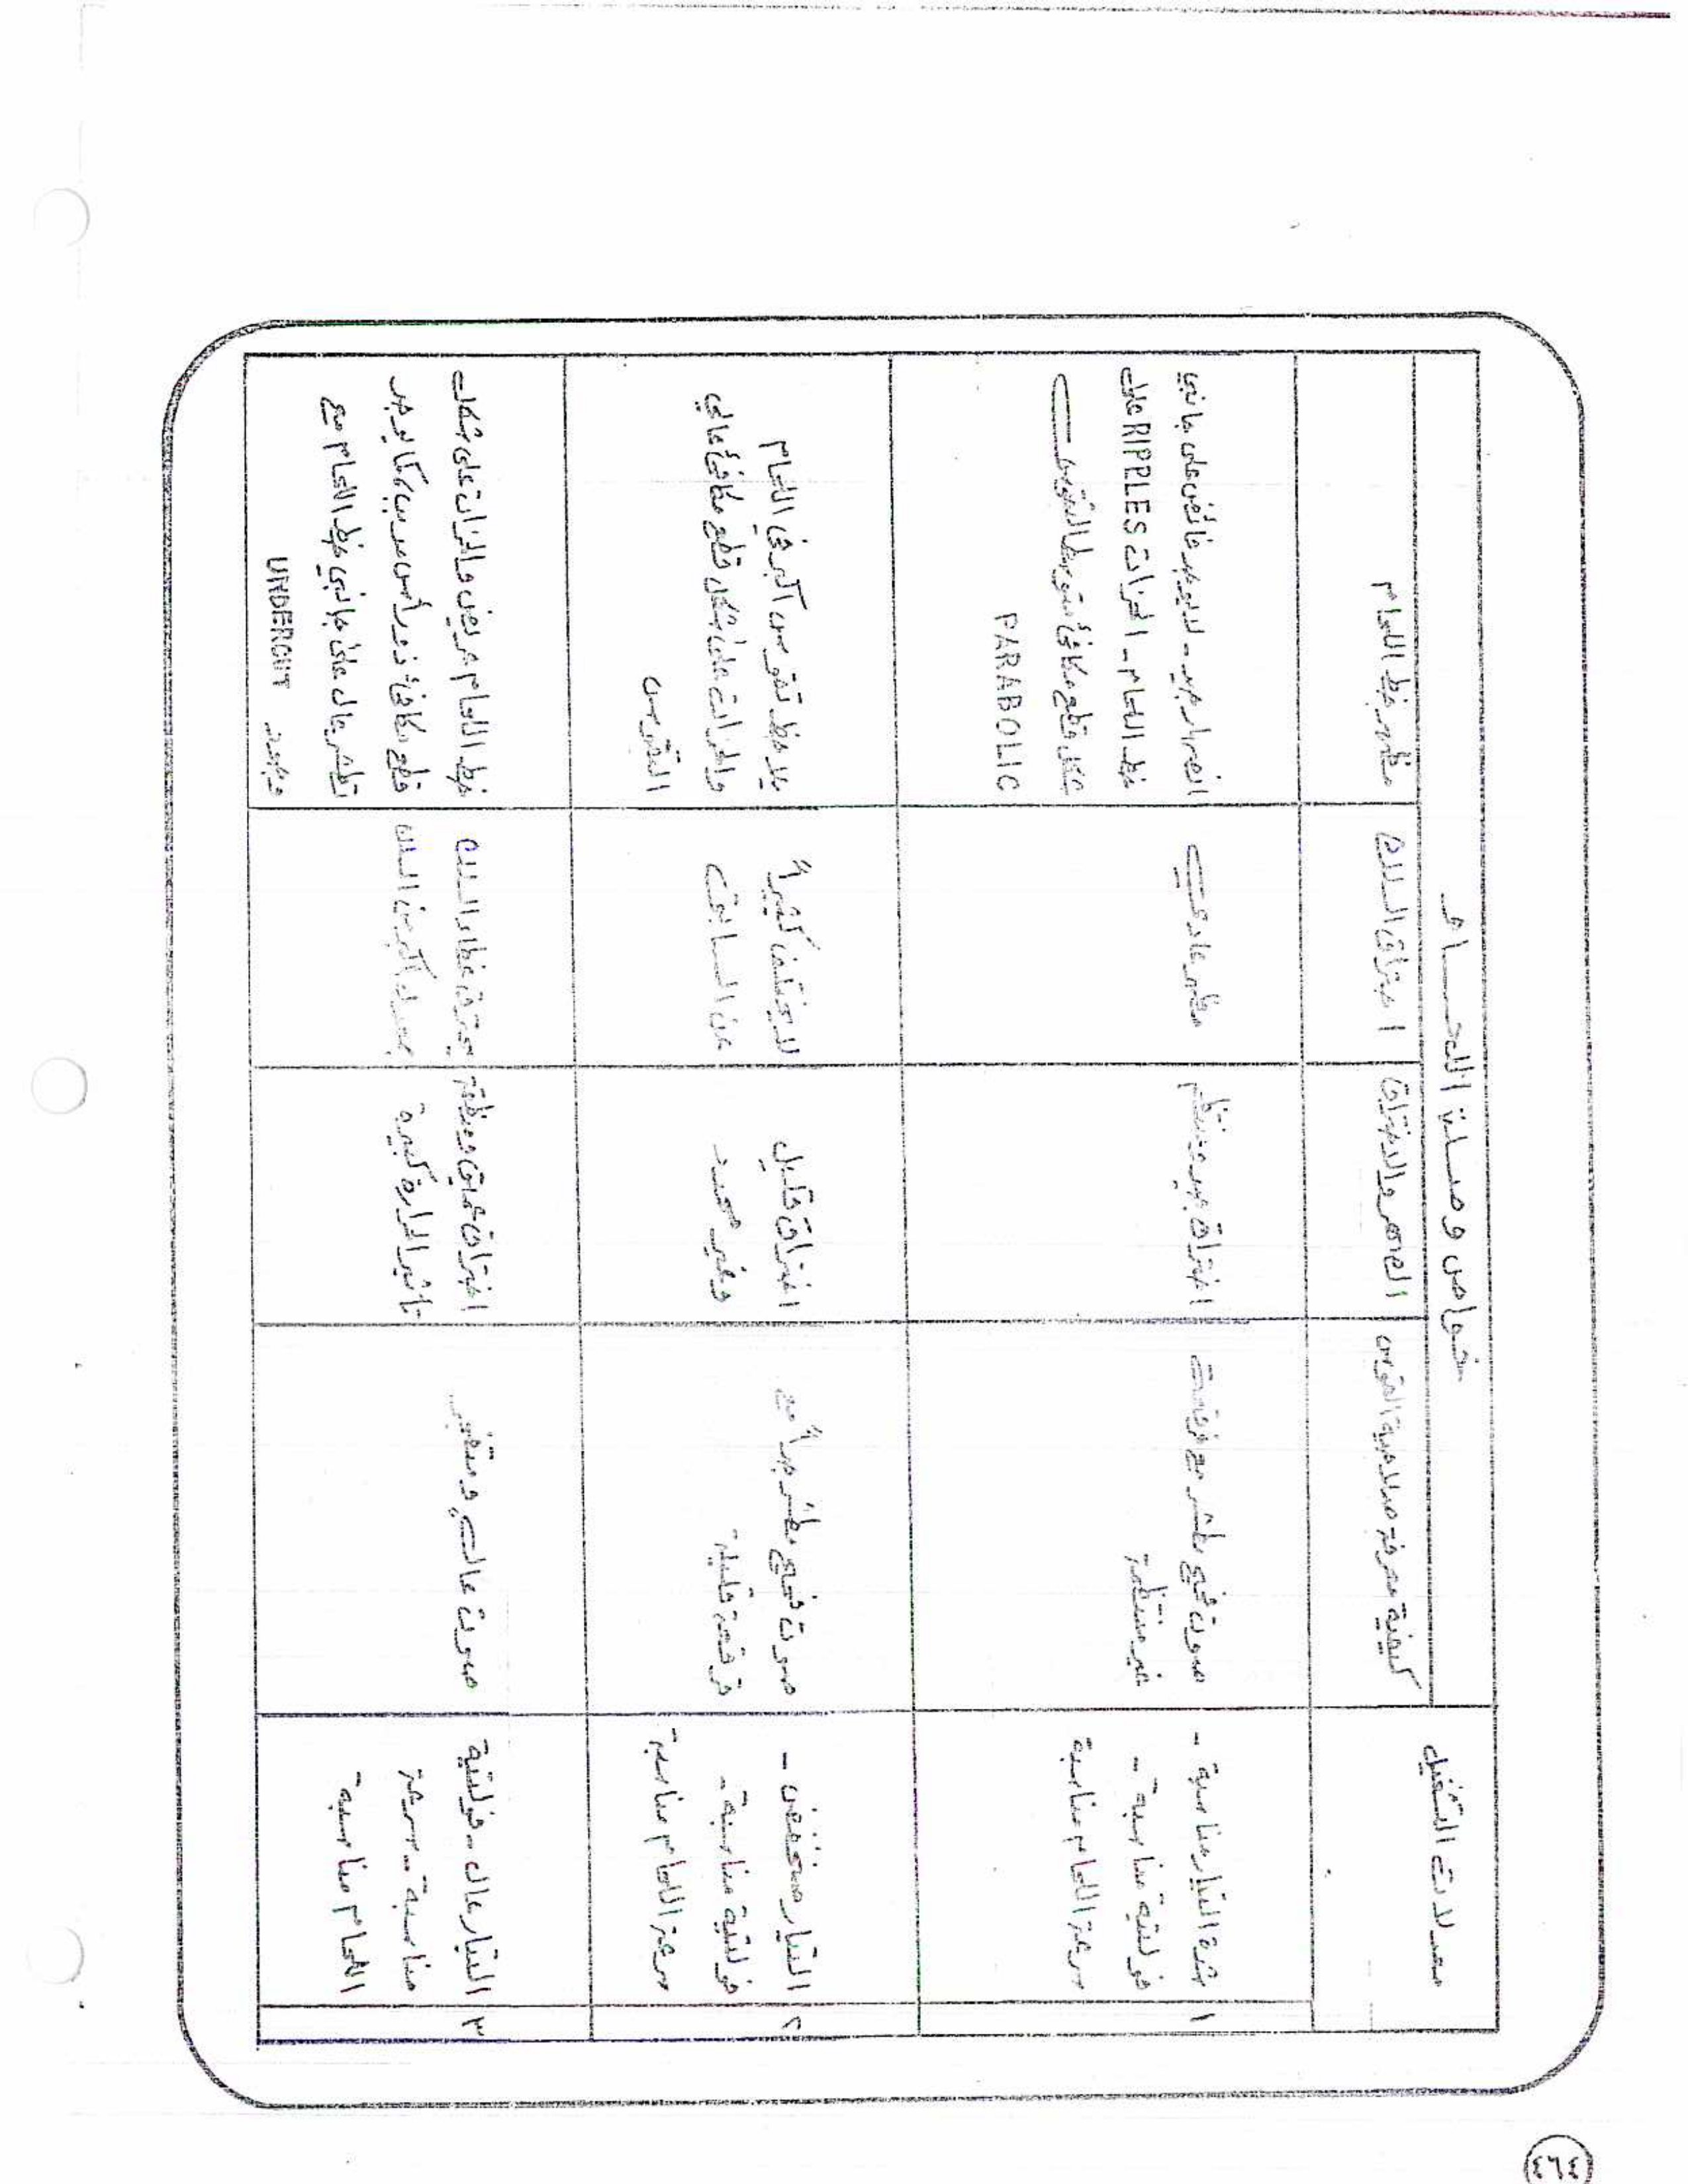 خواص وصلة اللحام
معدلات التشغيل
كيفية معرفة صلاحية القوس
الصهر والاختراق
احتراق السلك
مظهر خط اللحام
١
شدة التيار مناسبة -
فولتية مناسبة -
سرعة اللحام مناسبة
صوت فحيح بطش مع فرقعت
غير منتظمة
اختراق جيد ومنتظم
مظهر عادي
انصهار جيد - لا يوجد فائض على جانبي
خط اللحام - الحزات RIPPLES على
شكل قطع مكافئ متوسط التقوس
PARABOLIC
٢
التيار منخفض -
فولتية مناسبة -
سرعة اللحام مناسبة
صوت فحيح بطش جداً مع
فرقعة قليلة
اختراق قليل
وغير محدد
لا يختلف كثيراً
عن السابق
يلاحظ تقوس أكبر في اللحام
والحزات على شكل قطع مكافئ عالي
التقوس
٣
التيار عال - فولتية
مناسبة - سرعة
اللحام مناسبة
صوت عالي ومتغير
اختراق عميق ومنطقة
تأثير الحرارة كبيرة
يحترق غطاء السلك
بمعدل أكبر من السلك
خط اللحام عريض والحزات على شكل
قطع مكافئ ذو رأس مدبب كما يوجد
تطشر عال على جانبي خط اللحام مع
وجود UNDERCUT
٣٦٤